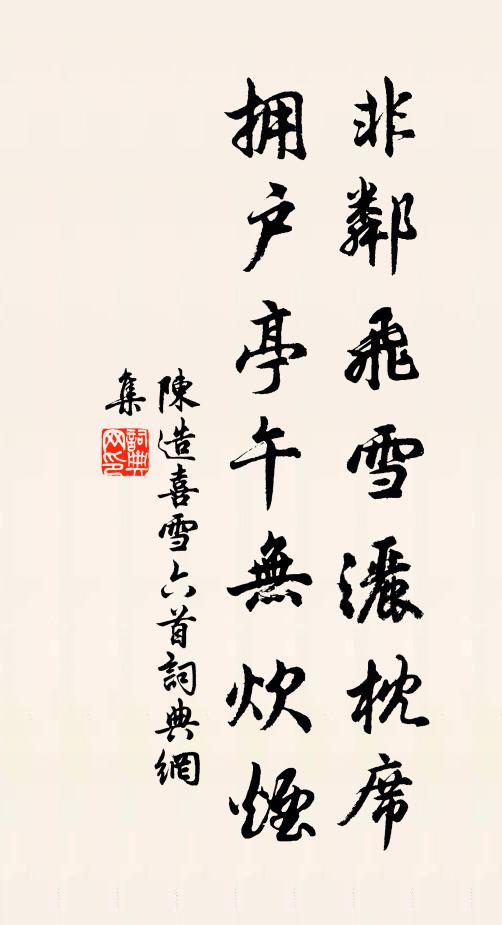 非鄰飛雪灑枕席
拥户亭午無炊煙
陳造喜雪六首詞典網
集
詞典
网印